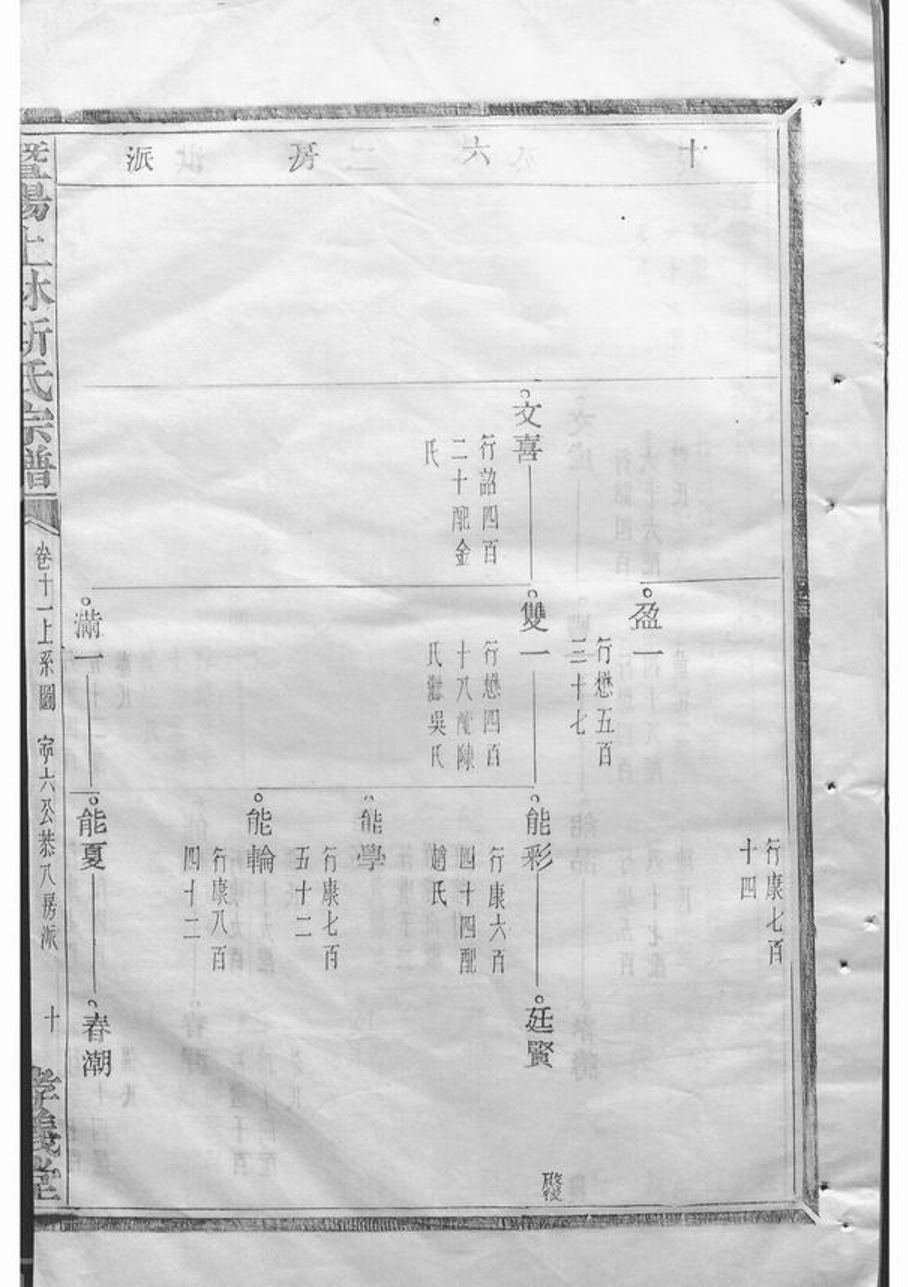 十六房派
行康七百
十四
盈一
行懋五百
三十七
文喜
行詔四百
二十配金
氏
雙一
行懋四百
十八配陳
氏繼吳氏
能彩
行康六百
四十四配
趙氏
廷賢
能學
行康七百
五十二
能輪
行康八百
四十二
滿一
能夏
春潮
暨陽上林斯氏宗譜
卷十一上系圖
六公恭八房派
十
孝義堂